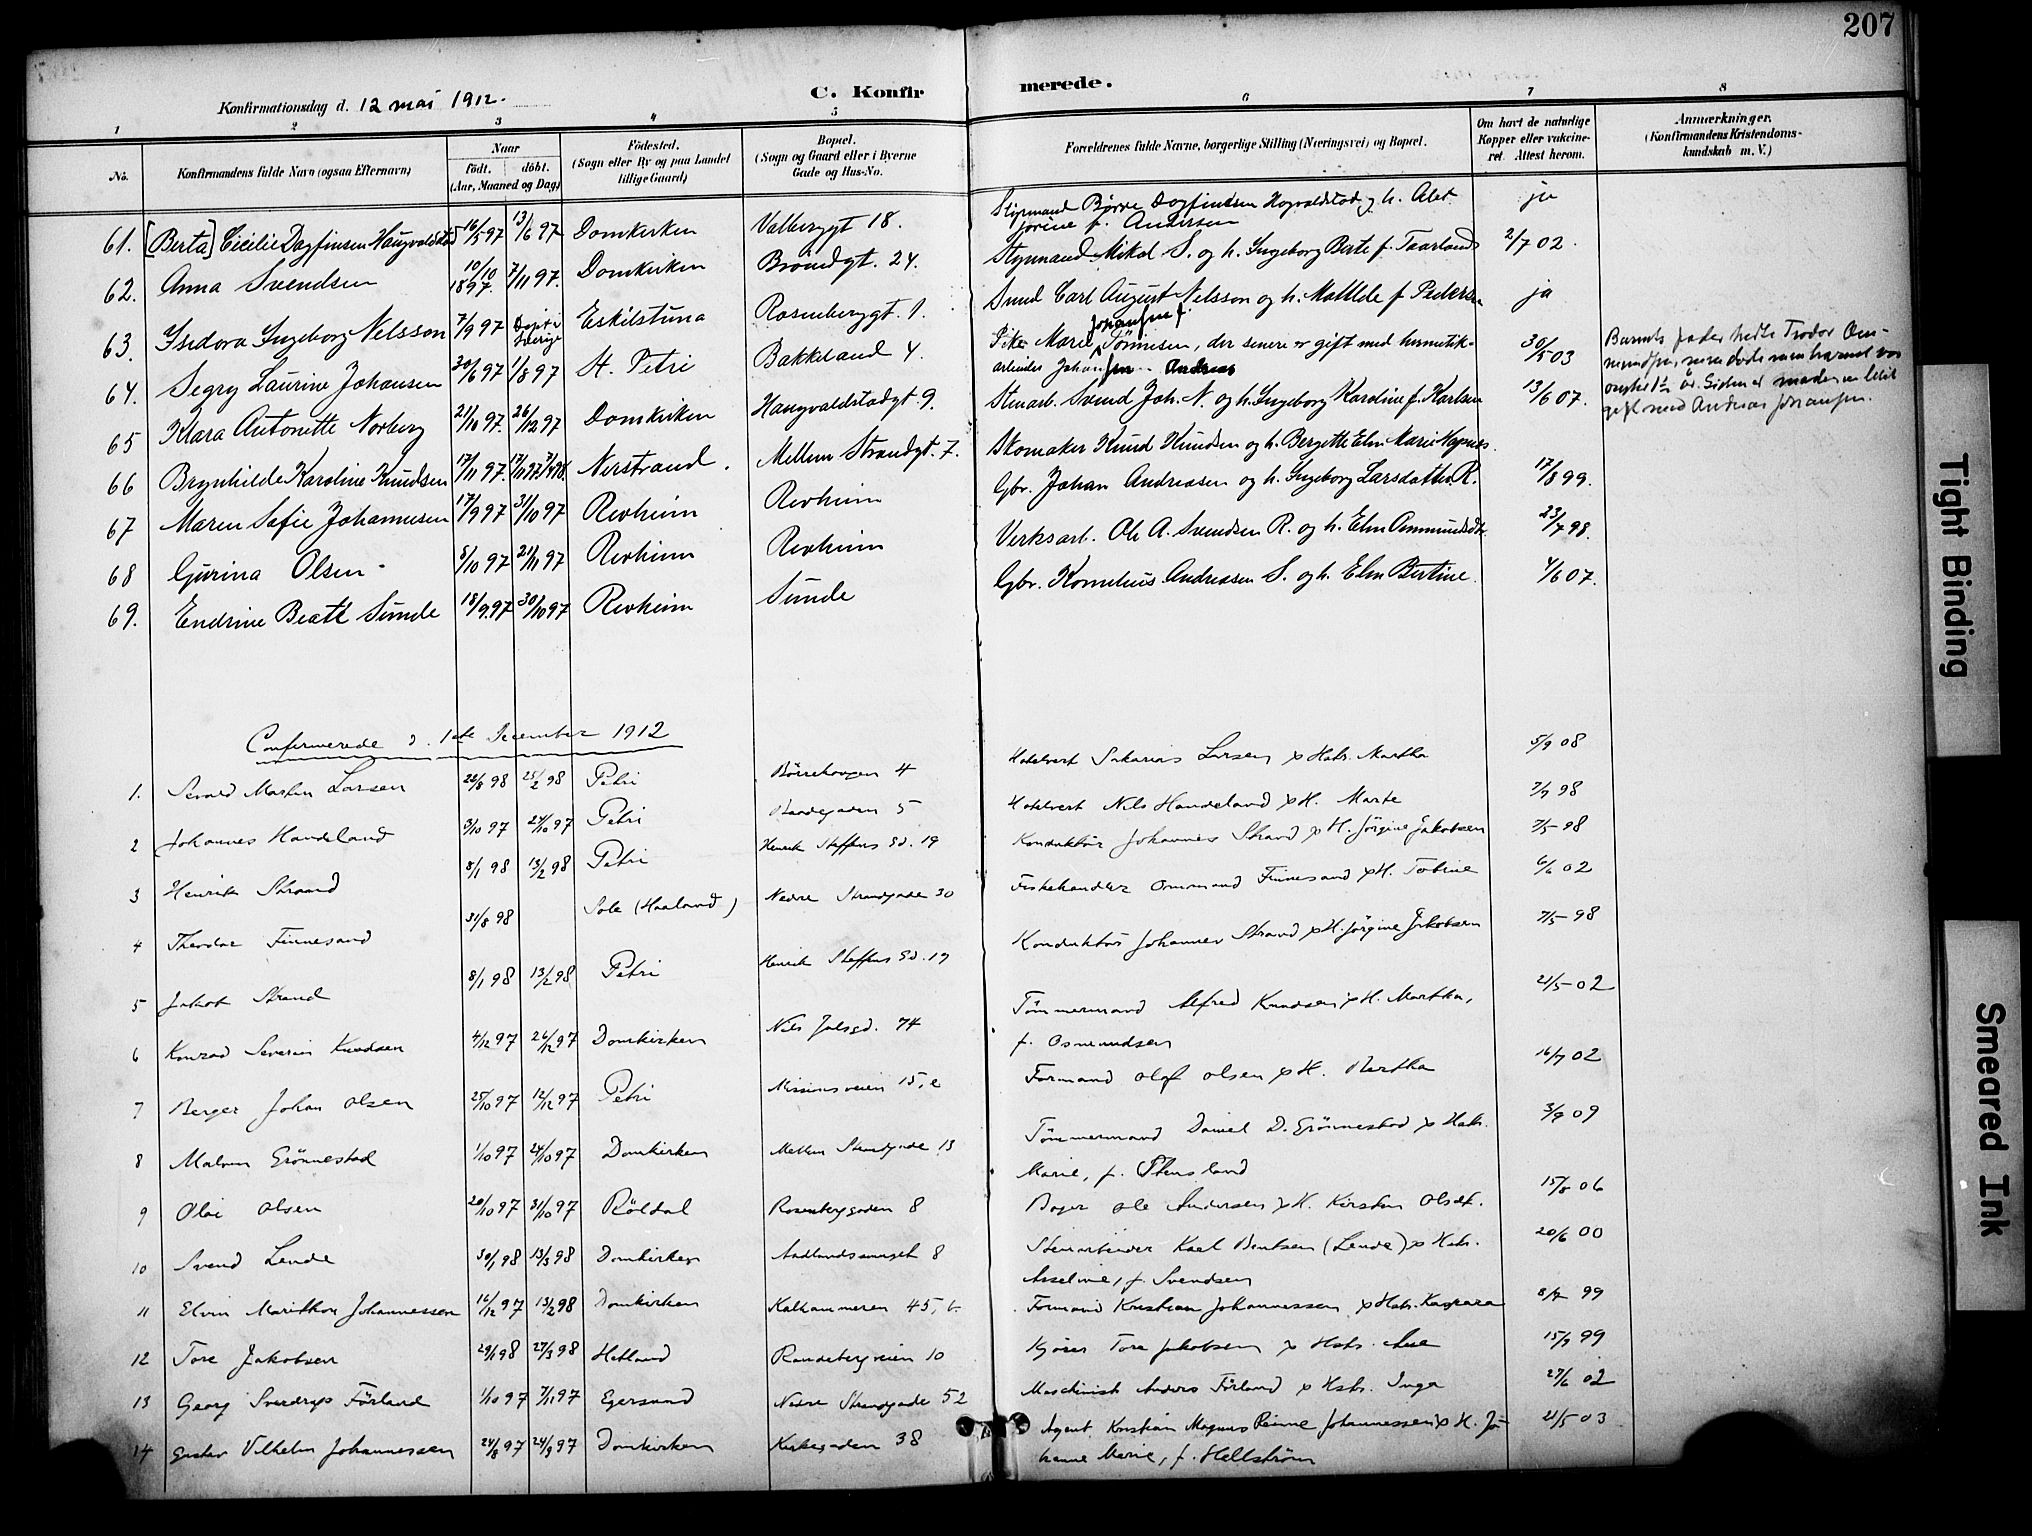 207
Konfirmationsdag d. 12 mai 1912.
C. Konfirmerede.
1 2 3 4 5 6 7 8
No.
Konfirmandens fulde Navn (ogsaa Efternavn)
Naar
født. døbt.
(Aar, Maaned og Dag)
Fødested.
(Sogn eller By og paa Landet
tillige Gaard)
Bopæl.
(Sogn og Gaard eller i Byerne
Gade og Hus-No.
Forældrenes fulde Navne, borgerlige Stilling (Næringsvei) og Bopæl.
Om havt de naturlige
Kopper eller vakcine-
ret. Attest herom.
Anmærkninger.
(Konfirmandens Kristendoms-
kundskab m. V.)
61. [Berta] Cicilie Dagfinsen Haugvaldstad 16/5 97 13/6 97 Domkirken Valberggt 18. Styrmand Børre Dagfinsen Hogvaldstad og h. Alet
Jørine f. Andersen ja
62. Anna Svendsen 10/10 1897. 7/11 97. Domkirken Brøndgt. 24. Styrmand Mikal S. og h. Ingeborg Berte f. Taarland 2/7 02.
63. Isidora Ingeborg Nelsson 7/9 97 Døpt i Sverige Eskilstuna Rosenberggt. 1. Smed Carl August Nelsson og h. Matilde f. Pedersen ja
64. Segry Laurine Johansen 30/6 97 1/8 97 St. Petri Bakkeland 4. Pike Marie Johansen f. Tønnesen, der senere er gift med hermetik-
arbeider Johansen Andreas 30/5 03
Barnets fader hedte Teodor Om-
mundsen, men døde men barnet var
omtrent 1/2 år. Siden er moderen blit
gift med Andreas Johansen.
65 Klara Antonette Norberg 21/10 97. 26/12 97 Domkirken Haugvaldstadgt. 9. Stenarb. Svend Joh. N. og h. Ingeborg Karoline f. Karlsen 13/6 07.
66 Brynhilde Karoline Knudsen 17/11 97. Nerstrand. Mellem Strandgt. 7. Skomaker Knud Knudsen og h. Bergitte Elen Marie
67 Maren Sofie Johannesen 17/9 97 31/10 97 Revheim Revheim Gbr. Johan Andreasen og h. Ingeborg Larsdatter R. 17/8 99.
68 Gurina Olsen 8/10 97 21/11 97 Revheim Revheim Verksarb. Ole A. Svendsen R. og h. Elen Ommundsdtr. 23/7 98.
69. Endrine Beate Sunde 18/9.97 30/10 97 Revheim Sunde Gbr. Kornelius Andreasen S. og h. Elen Bertine. 4/6 07.
Confirmerede d. 1ste December 1912
1. Sevald Martin Larsen 22/8 98 25/2 98 Petri Børrehaugen 4 Hotelvert Sakarias Larsen & Hstr. Martha 5/9 08
2 Johannes Handeland 3/10 97 24/10 97 Petri Baadegaden 5 Hotelvert Nils Handeland & H. Marte 7/9 98
3 Henrik Strand 8/1 98 13/2 98 Petri Henrik Steffens Gd. 19 Konduktør Johannes Strand & H. Jørgine Jakobsen 7/5-98
4 Theodor Finnesand 31/8 98 Sole (Haaland) Nedre Strandgade 30 Fiskehandler Ommund Finnesand & H. Tobine 6/6 02
5 Jakob Strand 8/1 98 13/2 98 Petri Henrik Steffens Gd. 19 Konduktør Johannes Strand & H. Jørgine Jakobsen 7/5-98
6 Konrad Severin Knudsen 4/12 97 26/12 97 Domkirken Nils Juelsgd. 74 Tømmermand Alfred Knudsen & H. Martha,
f. Osmundsen 21/5-02
7 Berger Johan Olsen 25/10 97 12/12 97 Petri Missionsveien 15, c Formand Olaf Olsen & H. Bertha 16/7 02
8 Malvin Grønnestad 1/10 97 24/10 97 Domkirken Mellem Strandgade 13 Tømmermand Daniel D. Grønnestad & Hstr.
Marie, f. Stensland 3/9 09
9 Olai Olsen 20/10 97 31/10 97 Røldal Rosenberggaden 8 Bager Ole Andersen & H. Kirsten Olsdt. 15/8 06
10 Svend Lende 30/1 98 13/3 98 Domkirken Aadlandsmuget 8 Stenarbeider Karl Bentsen (Lende) & Hstr.
Asseline, f. Svendsen 20/6 00
11 Elvin Marithon Johannessen 16/12 97 13/2 98 Domkirken Kalhammeren 45, b Formand Kristian Johannessen & Hstr. Kaspara 8/7 99
12 Tore Jakobsen 29/1 98 27/3 98 Hetland Randebergveien 10 Kjører Tore Jakobsen & Hstr. Ane 15/9 99
13 Georg Sverdrup Førland 1/10 97 7/11 97 Egersund Nedre Strandgade 52 Maschinist Anders Førland & Hstr. Inga 27/6 02
14 Gustav Vilhelm Johannessen 24/8 97 24/9 97 Domkirken Kirkegaden 38 Agent Kristian Magnus Peinne Johannessen & H. Jo-
hanne Marie, f. Hellstrøm 21/5 03
Tight Binding
Smeared Ink